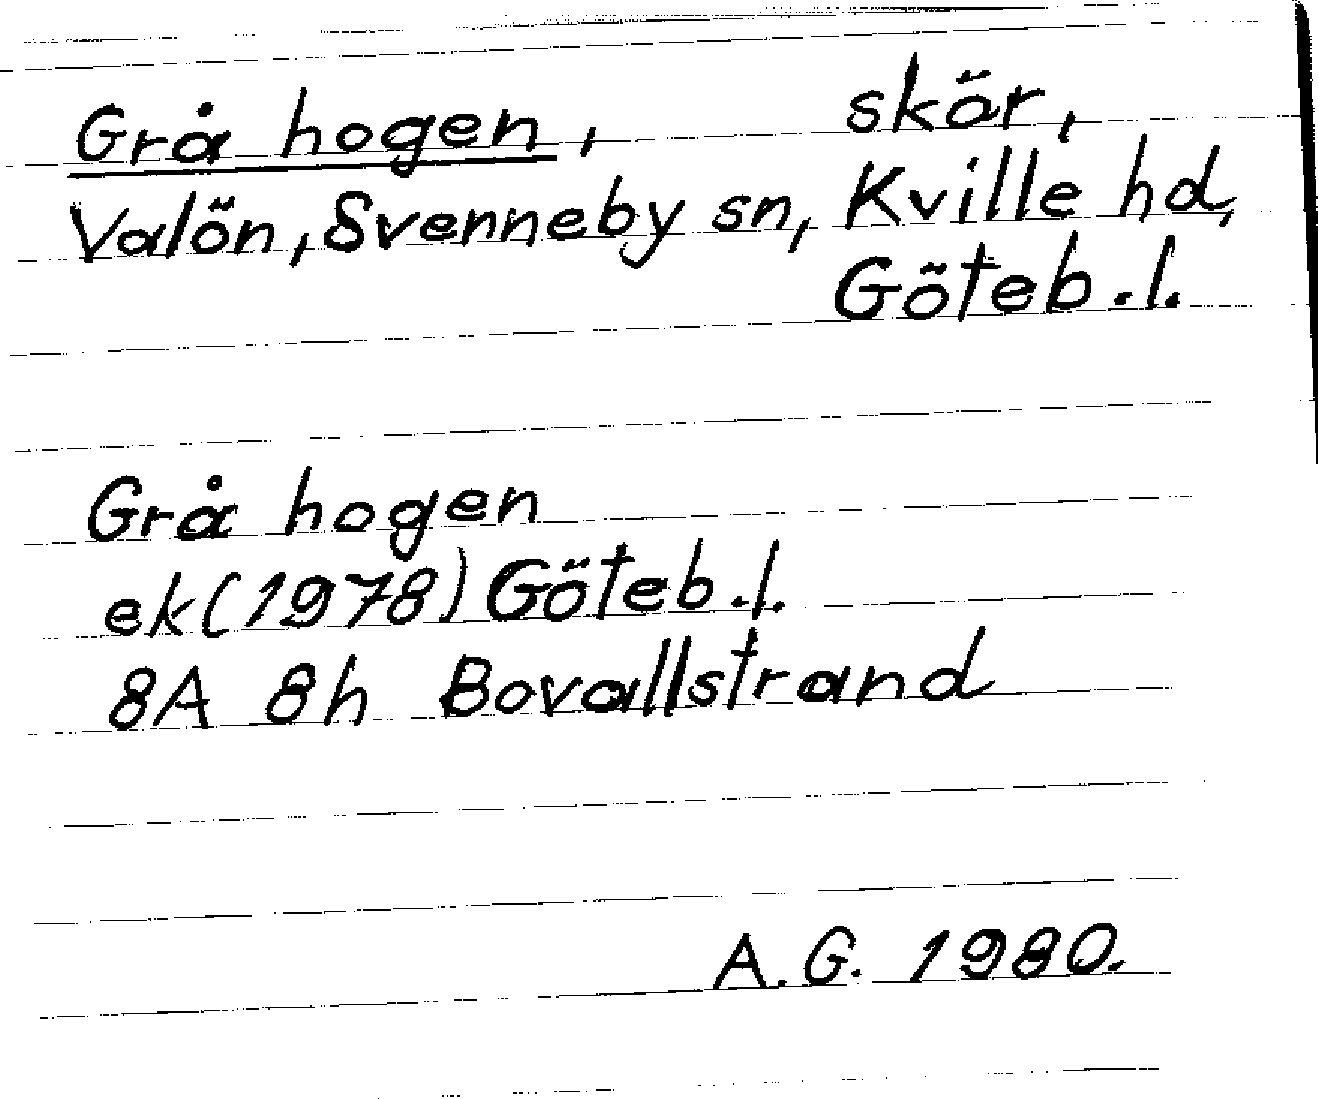 Grå hogen, skär,
Valön, Svenneby sn, Kville hd,
Göteb.l.
Grå hogen
ek (1978) Göteb.l.
8A 8h Bovallstrand
A.G. 1980.